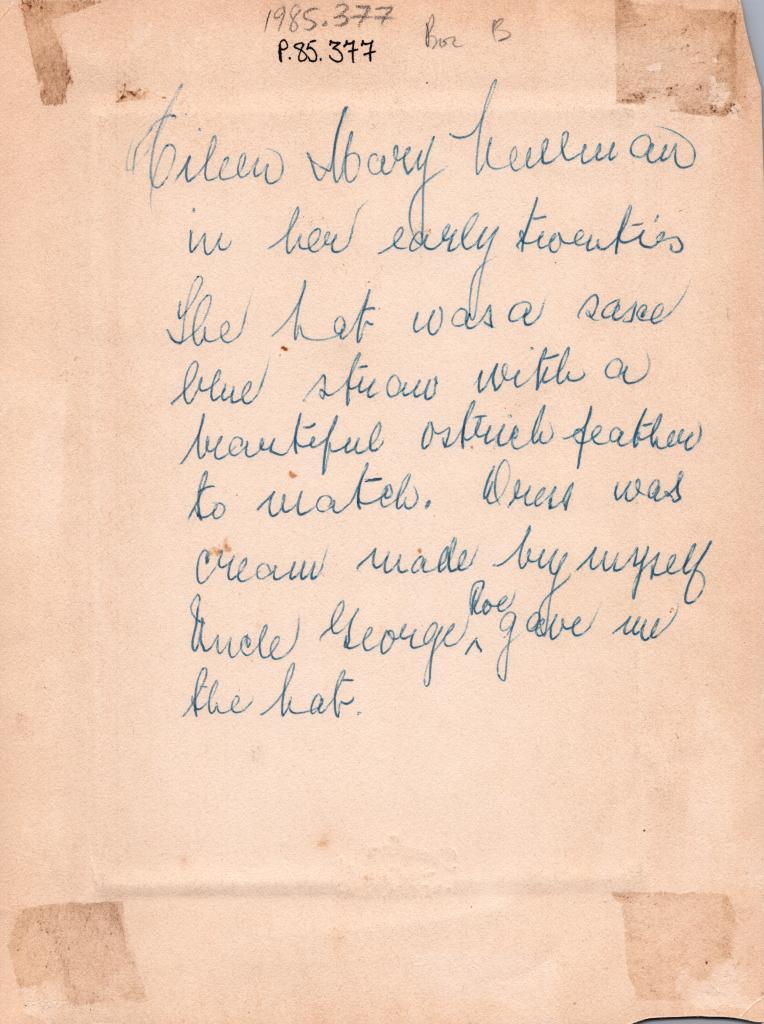 1985.377
P.85.377 Box B
Eileen Mary
in her early twenties
The hat was a saxe
blue straw with a
beautiful ostrich feather
to match. Dress was
cream made by myself
Uncle George ^ Roe gave me
the hat.